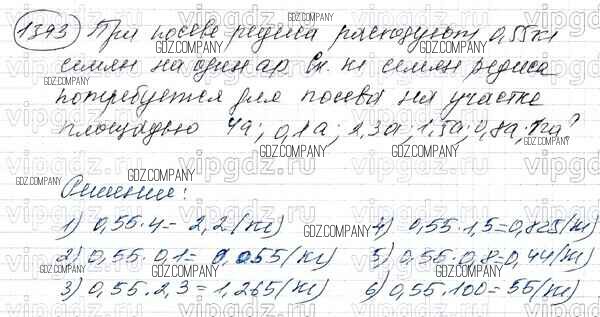 1393 При посеве редиса расходуют 0,55 кг
семян на один ар Ск. кг семян редиса
потребуется для посева на участке
площадью 4а; 0,1а; 2,3а; 1,5а; 0,8а; 1га?
Решение:
1) 0,55·4= 2,2(кг) 4) 0,55·1,5=0,825(кг)
2) 0,55·0,1= 0,055(кг) 5) 0,55·0,8=0,44(кг)
3) 0,55·2,3=1,265(кг) 6) 0,55·100=55(кг)
GDZ.COMPANY
vipgdz.ru